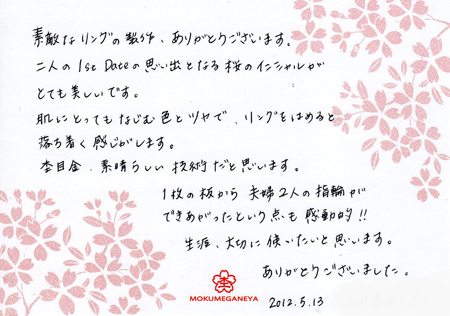 素敵なリングの製作、ありがとうございます。
二人の1st Dateの思い出となる桜のイニシャルが
とても美しいです。
肌にとってもなじむ色とツヤで、リングをはめると
落ち着く感じがします。
杢目金、素晴らしい技術だと思います。
1枚の板から夫婦2人の指輪が
できあがったという点も感動的!!
生涯、大切に使いたいと思います。
ありがとうございました。
MOKUMEGANEYA
2012.5.13